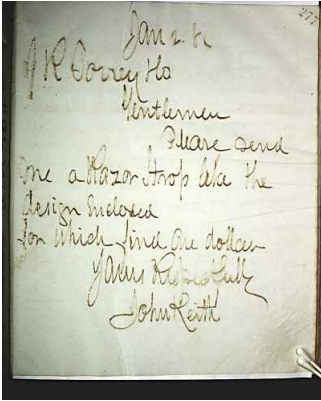 277
Jan
J R Torrey & Co
Gentlemen
Please send
me a Razor Strop like the
design Enclosed
for which find one dollar
Yours Respectfully
John Keith